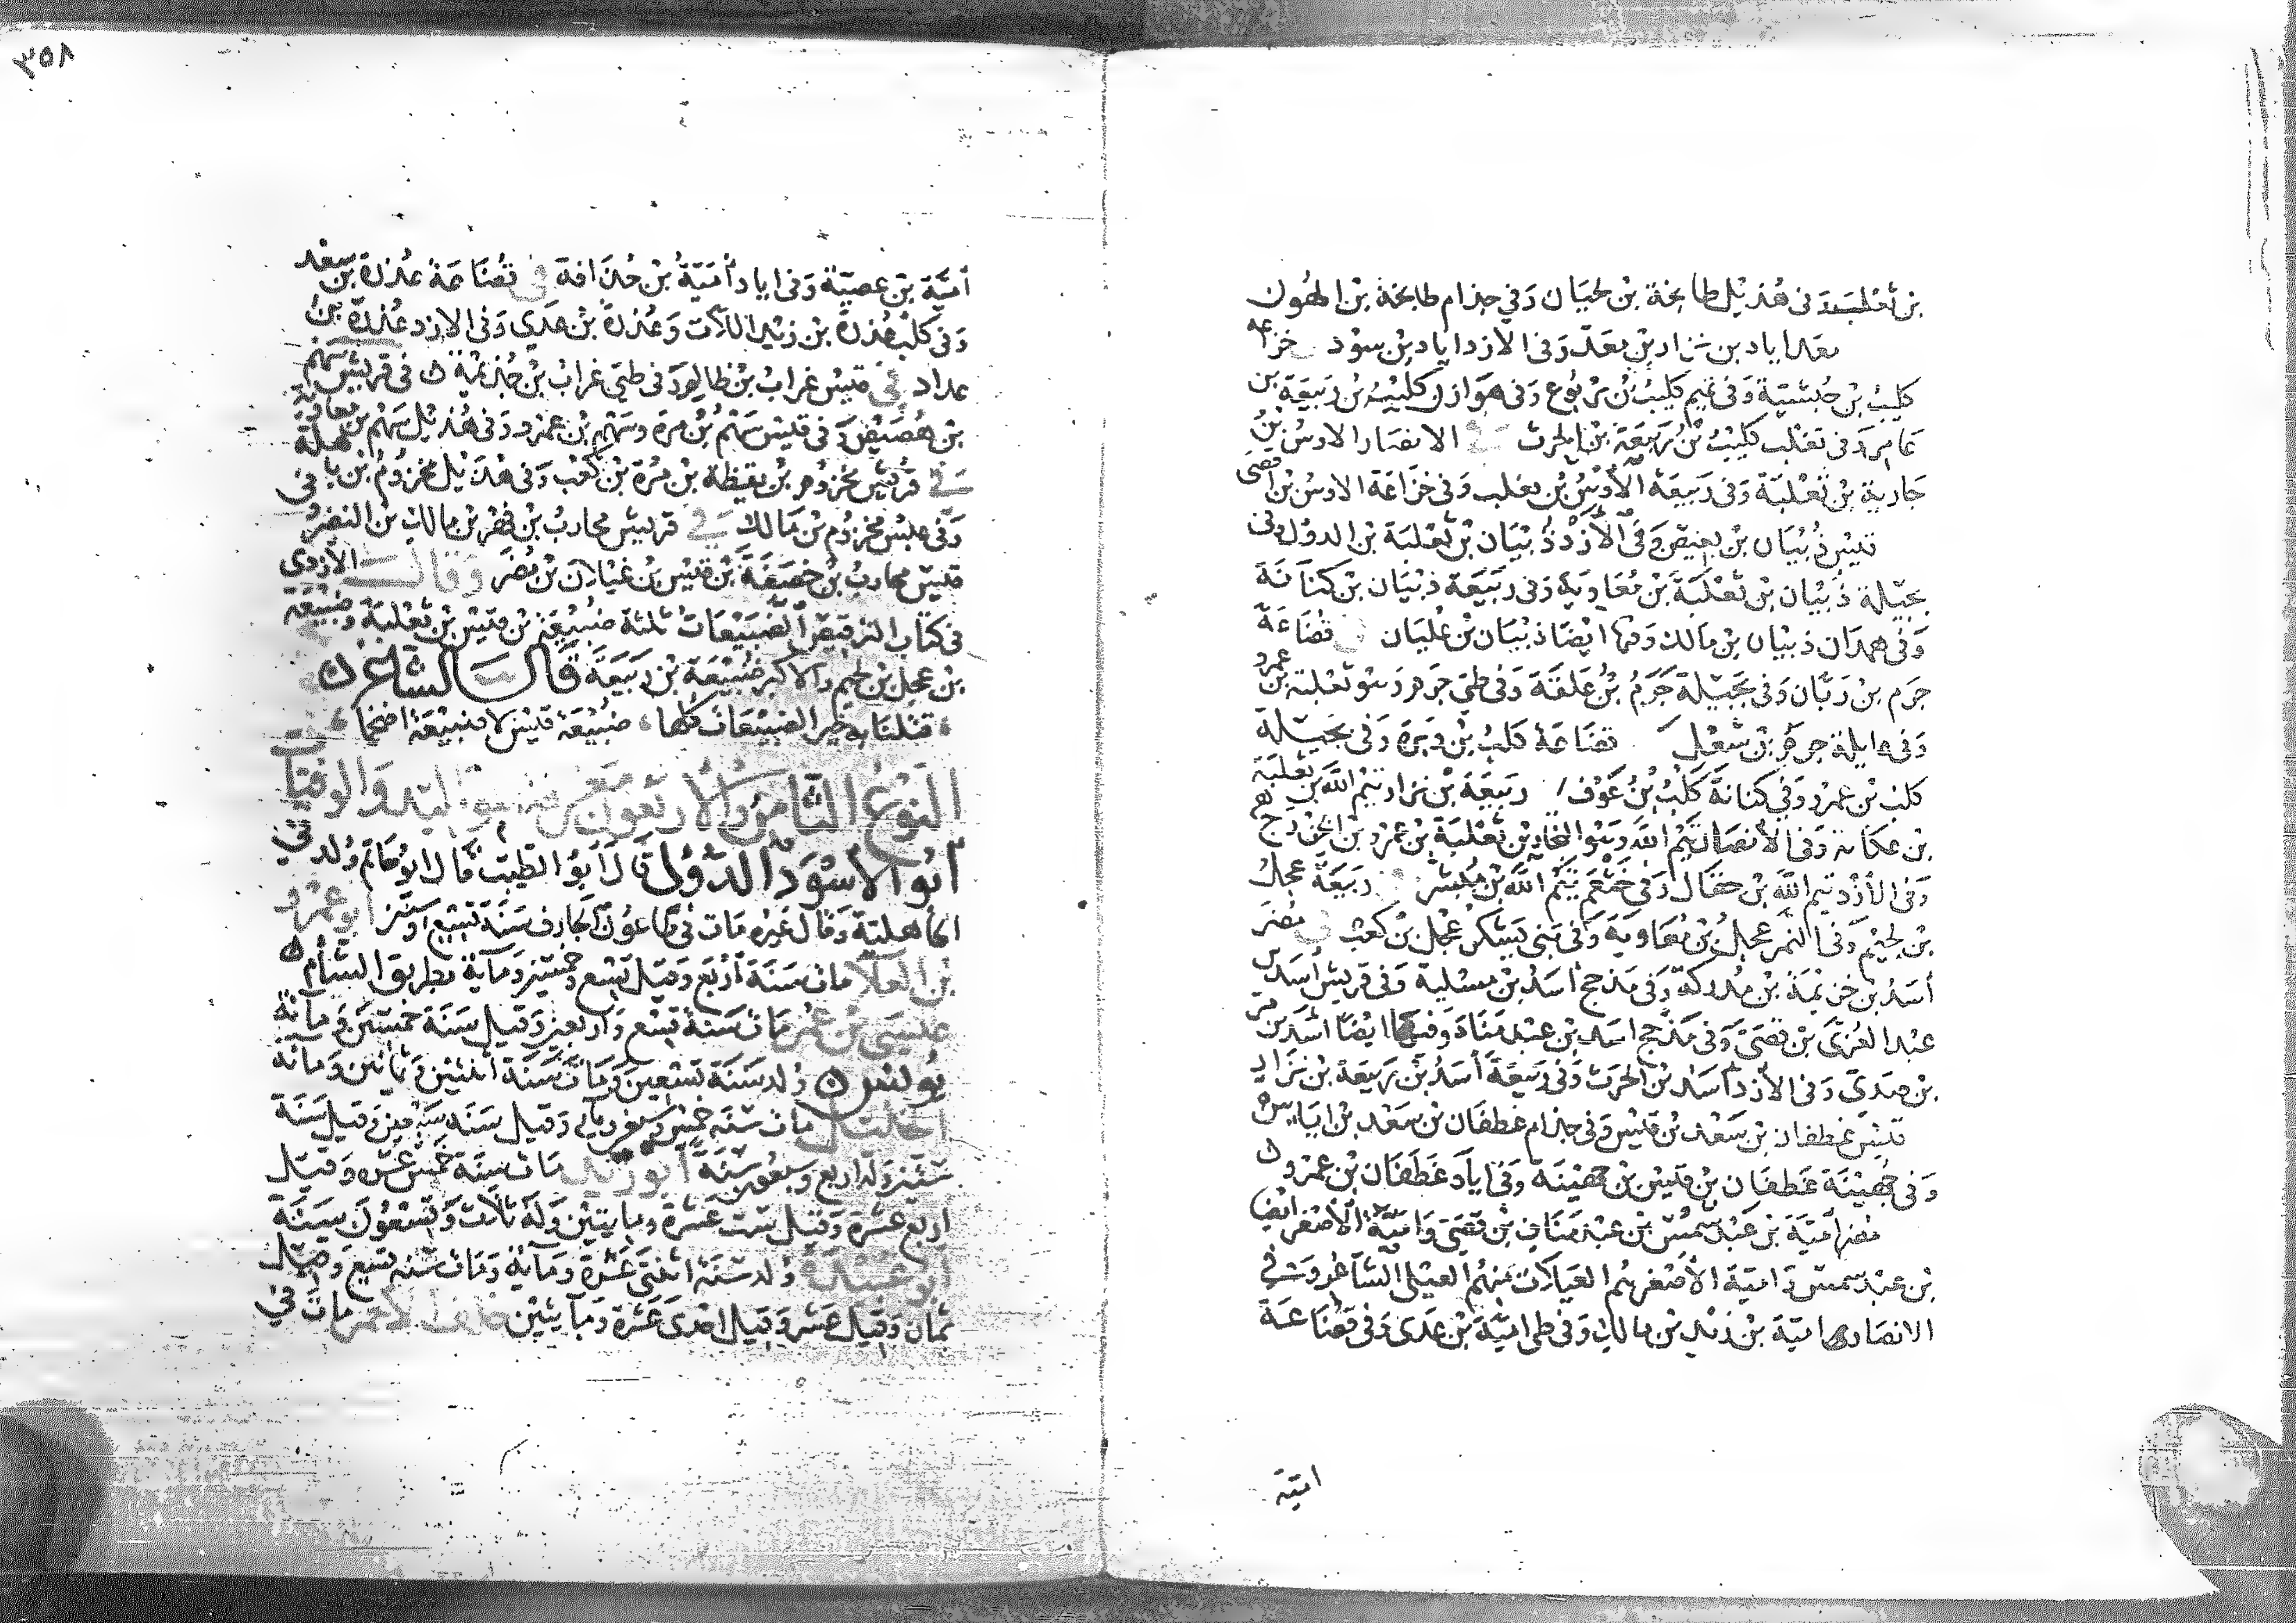 بن ثعلبة وفى هذيل طابخة بن لحيان وفي جذام طابخة بن الهون
معد اياد بن نزار بن معد وفى الازد اياد بن سود خزاعة
كليب بن حبشية وفى تميم كليب بن يربوع وفى هوازن كليب بن ربيعة بن
عامر وفى تغلب كليب بن ربيعة بن الحرث في الانصار الاوس بن
حارثة بن ثعلبة وفى ربيعة الأوس بن تغلب وفى خزاعة الاوس بن افصى
قيس ذبيان بن بغيض وفى الأزد ذبيان بن ثعلبة بن الدول وفى
بجيلة ذبيان بن ثعلبة بن معاوية وفى ربيعة ذبيان بن كنانة
وفى همدان ذبيان بن مالك وفيها ايضا ذبيان بن عليان قضاعة
جرم بن ربان وفى بجيلة جرم بن علقة وفى طي جرم وهو ثعلبة بن عمرو
وفى عاملة جرم بن شعل قضاعة كلب بن وبرة وفى بجيلة
كلب بن عمرو وفي كنانة كلب بن عوف ربيعة بن نزار تيم الله بن ثعلبة
بن عكابة وفى الأنصار تيم الله وهو النجار بن ثعلبة بن عمرو بن الخزرج
وفى الأزد تيم الله بن حقال وفى خثعم تيم الله بن مبشر ربيعة عجل
بن لجيم وفى النمر عجل بن معاوية وفى بنى يشكر عجل بن كعب في مضر
أسد بن خزيمة بن مدركة وفى مذحج أسد بن مسلية وفى قريش أسد بن
عبد العزى بن قصى وفى مذحج اسد بن عبد مناة وفيها ايضا أسد بن مر
بن صدى وفى الأزد أسد بن الحرث وفى ربيعة أسد بن ربيعة بن نزار
قيس غطفان بن سعد بن قيس وفى جذام غطفان بن سعد بن اياس
وفى جهينة غطفان بن قيس بن جهينة وفى اياد غطفان بن عمرو
مضر امية بن عبد شمس بن عبد مناف بن قصى وامية الأصغر ايضا
بن عبد شمس وامية الأصغر هم العبلات منهم العبلى الشاعر وفي
الانصار امية بن زيد بن مالك وفى طى امية بن عدى وفى قضاعة
امية
٣٥٨
أمية بن عصبة وفى اياد أمية بن حذافة في قضاعة عذرة بن سعد
وفى كلب عذرة بن زيد اللات وعذرة بن عدي وفى الازد عذرة بن
عداد في قيس غراب بن ظالم وفى طى غراب بن جذيمة في قريش سهم
بن هصيص وفى قيس سهم بن مرة وسهم بن عمرو وفى هذيل سهم بن معاوية
في قريش مخزوم بن يقظة بن مرة بن كعب وفى هذيل مخزوم بن باهلة
وفى عبس مخزوم بن مالك في قريش محارب بن فهر بن مالك بن النضر وفى
قيس محارب بن خصفة بن قيس بن غيلان بن مضر وقال الأزدى
في كتاب الترقيص الضبيعات ثلثة ضبيعة بن قيس بن ثعلبة وضبيعة
بن عجل بن لجيم والاكبر ضبيعة بن ربيعة قال الشاعر
قتلنا به خير الضبيعات كلها ضبيعة قيس لا ضبيعة اضجما
النوع الثامن والأربعون معرفة المواليد والوفيات
أبو الأسود الدؤلى قال أبو الطيب قال ابو حاتم ولد في
الجاهلية وقال غيره مات فى طاعون الجارف سنة تسع وستين أبو عمرو
بن العلا مات سنة أربع وقيل تسع وخمسين ومأية بطريق الشأم
عيسى بن عمر مات سنة تسع واربعين وقيل سنة خمسين ومأئة
يونس ولد سنة تسعين ومات سنة اثنتين وثمانين ومأئة
الخليل مات سنة خمس وسبعين وماية وقيل سنة سبعين وقيل سنة
ستين وله اربع وسبعون سنة أبو زيد مات سنة خمس عشرة وقيل
اربع عشرة وقيل ست عشرة ومايتين وله ثلاث وتسعون سنة
أبو عبيدة ولد سنة اثنتى عشرة ومأية ومات سنة تسع وقيل
ثمان وقيل عشر وقيل احدى عشرة ومأيتين خلف الأحمر مات في